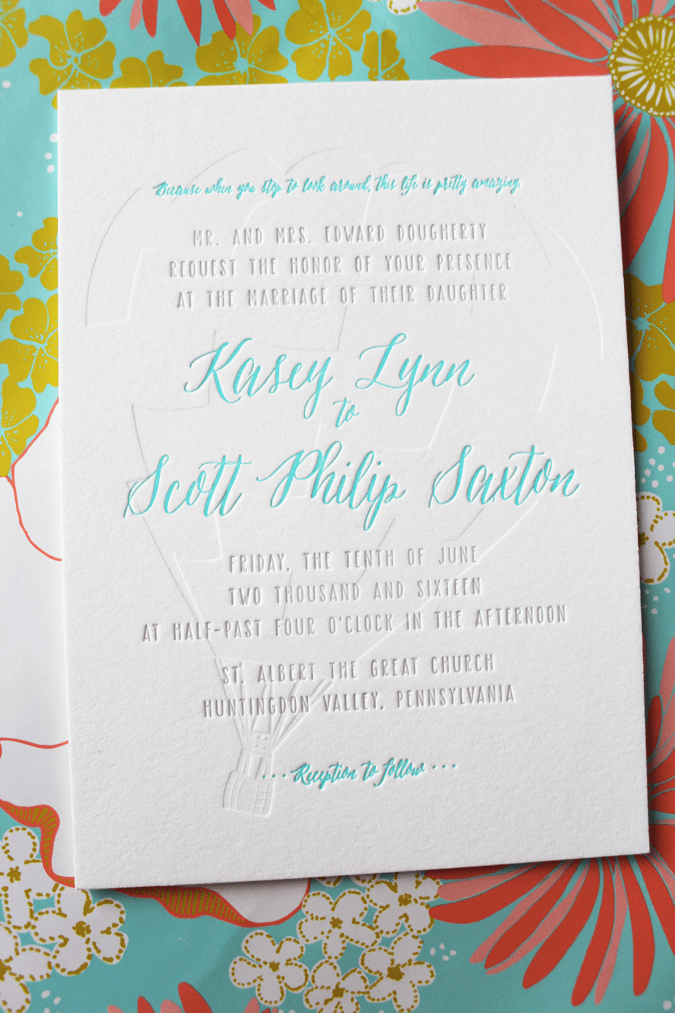 Because when you stop to look around, this life is pretty amazing.
MR. AND MRS. EDWARD DOUGHERTY
REQUEST THE HONOR OF YOUR PRESENCE
AT THE MARRIAGE OF THEIR DAUGHTER
Kasey Lynn
to
Scott Philip Saxton
FRIDAY, THE TENTH OF JUNE
TWO THOUSAND AND SIXTEEN
AT HALF-PAST FOUR O'CLOCK IN THE AFTERNOON
ST. ALBERT THE GREAT CHURCH
HUNTINGDON VALLEY, PENNSYLVANIA
... Reception to follow ...